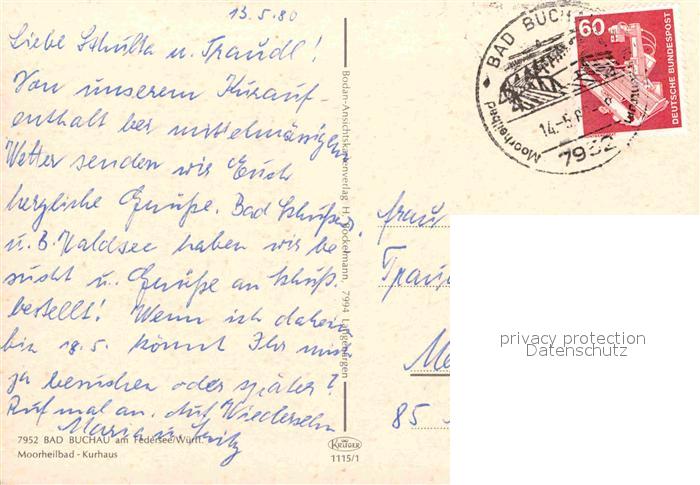 13.5.80
Liebe Schulta u. Traudl!
Von unserem Kurauf-
enthalt bei mittelmässigen
Wetter senden wir Euch
herzliche Grüße. Bad Schußenr.
u. B. Waldsee haben wir be
sucht u. Grüße an Schuß.
bestellt! Wenn ich daheim
bin 18.5. könnt Ihr mich
ja besuchen oder später?
Ruf mal an. Auf Wiedersehn
Maria u. Fritz
7952 BAD BUCHAU am Federsee/Württ.
Moorheilbad - Kurhaus
Bodan-Ansichtskartenverlag H. Bockelmann, 7994 Langenargen
KRÜGER
1115/1
BAD BUCHAU
Moorheilbad
14.-5.
7952
60
DEUTSCHE BUNDESPOST
Frau
85
privacy protection
Datenschutz